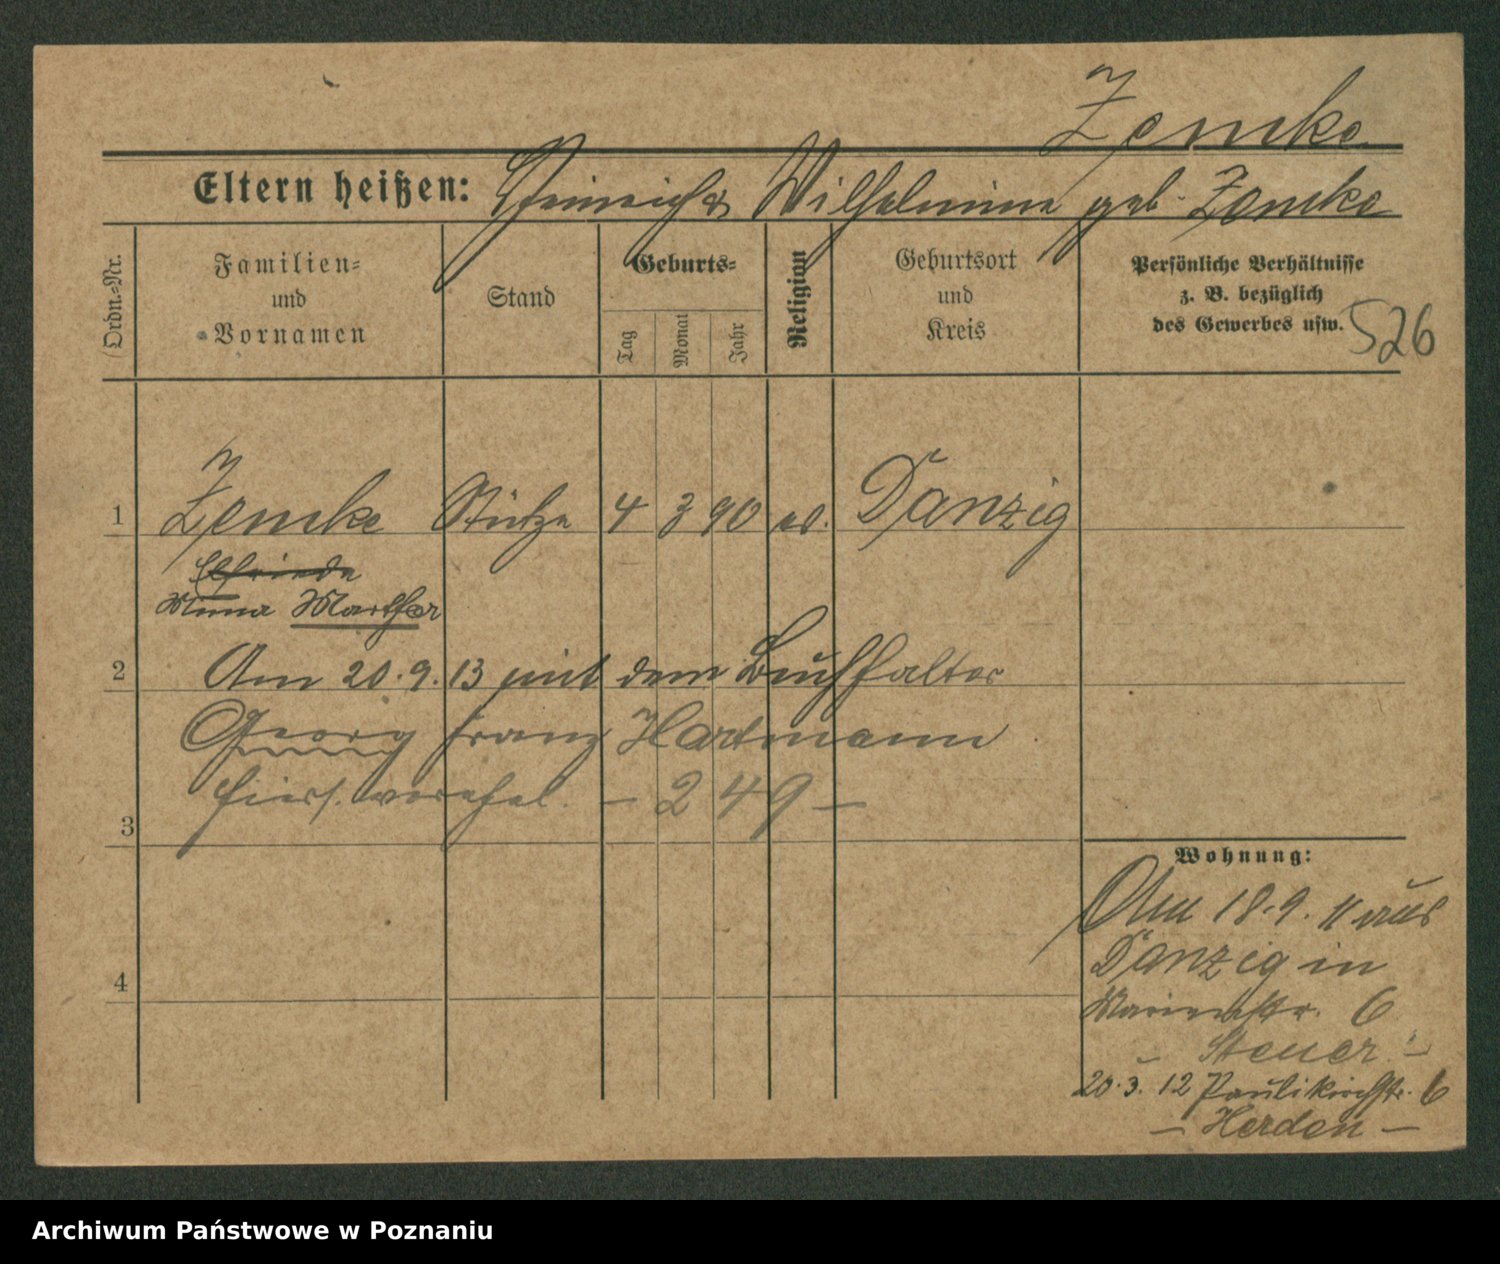 Zemke
Eltern heißen: Heinrich & Wilhelmine geb. Zemke
Ordn.-Nr.
Familien-
und
Vornamen
Stand
Geburts-
Tag
Monat
Jahr
Religion
Geburtsort
und
Kreis
Persönliche Verhältnisse
z. B. bezüglich
des Gewerbes usw.
526
1 Zemke Stütze 4 3 90 ev. Danzig
Elfriede
Martha
2 Am 20.9.13 mit dem Buchhalter
Georg Franz Hartmann
hiers. verehel. – 249 –
3
4
Wohnung:
Am 18.9.11 aus
Danzig in
Marienstr. 6
Steuer. –
20.3.12 Paulikirchstr. 6
– Herden –
Archiwum Państwowe w Poznaniu